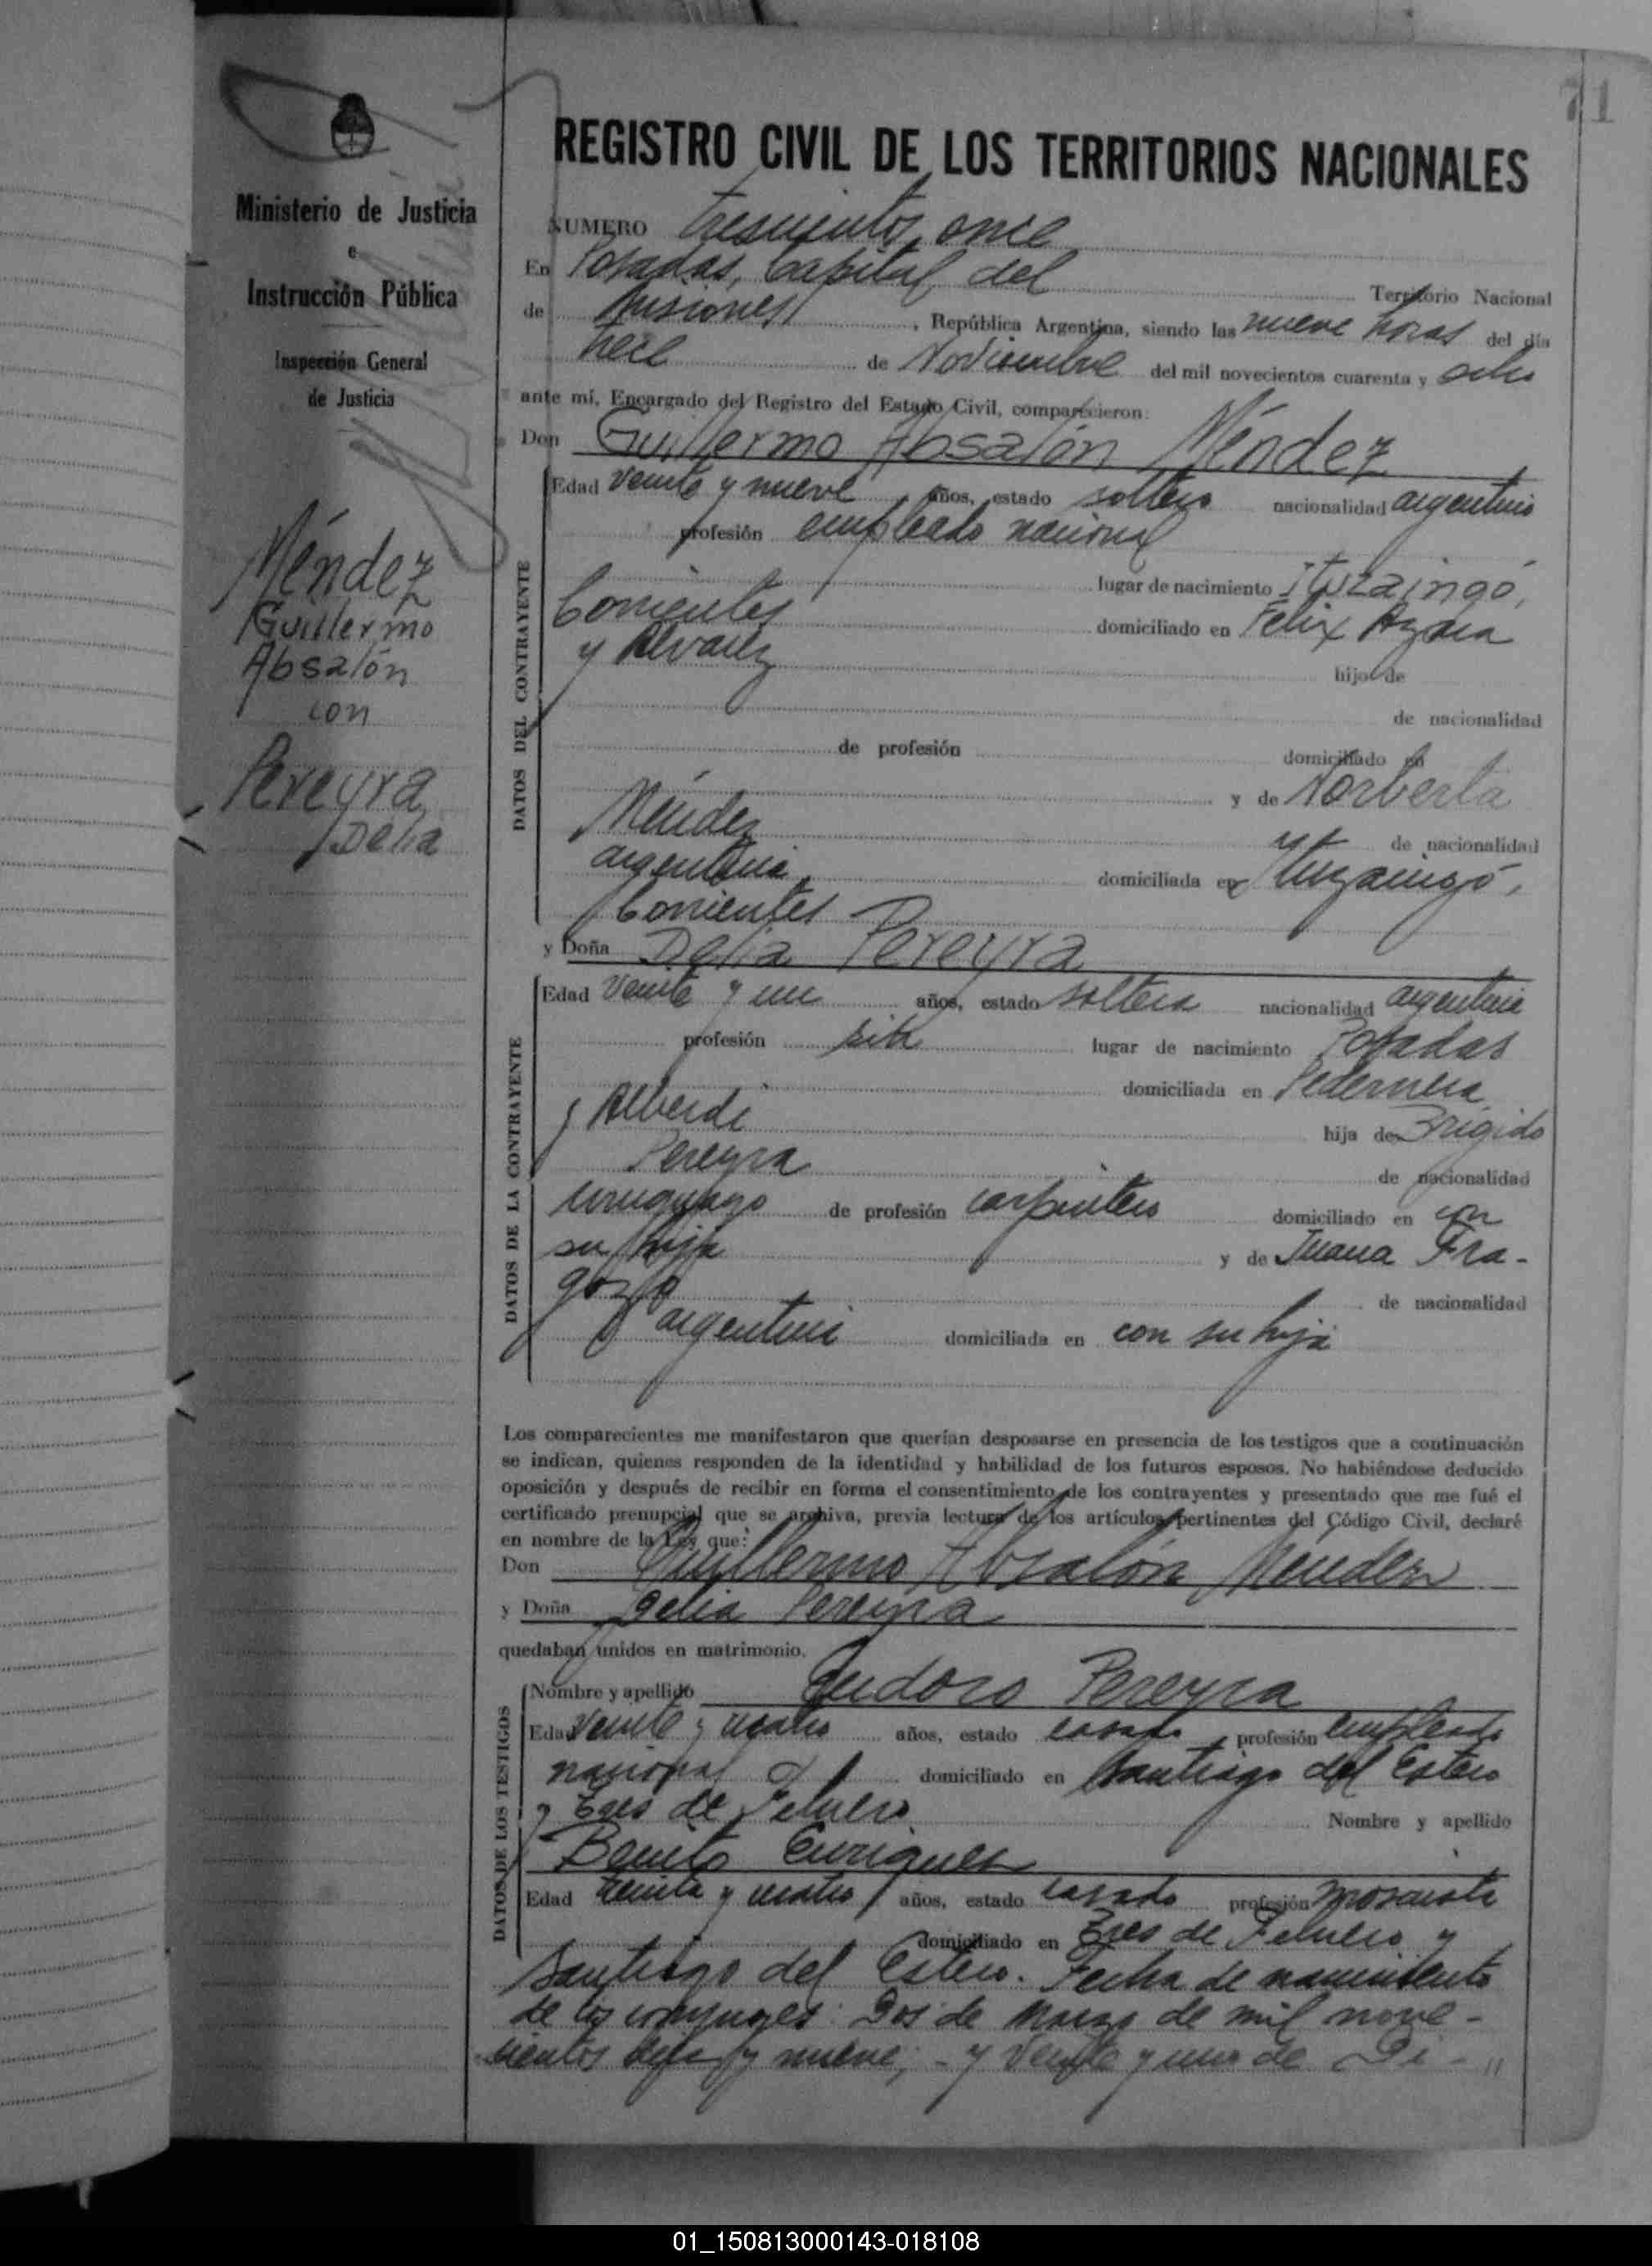 71
Ministerio de Justicia
e
Instrucción Pública
Inspección General
de Justicia
Méndez
Guillermo
Absalón
con
Pereyra
Delia
REGISTRO CIVIL DE LOS TERRITORIOS NACIONALES
NUMERO trescientos once
En Posadas, Capital del Territorio Nacional
de Misiones, República Argentina, siendo las nueve horas del día
trece de Noviembre del mil novecientos cuarenta y ocho
ante mí, Encargado del Registro del Estado Civil, comparecieron:
Don Guillermo Absalón Méndez
DATOS DEL CONTRAYENTE
Edad veinte y nueve años, estado soltero nacionalidad argentino
profesión empleado nacional
lugar de nacimiento Ituzaingó,
Corrientes domiciliado en Felix Azara
y Alvarez hijo de
de nacionalidad
de profesión domiciliado en
y de Norberta
Méndez de nacionalidad
argentina domiciliada en Ituzaingó,
Corrientes
y Doña Delia Pereyra
DATOS DE LA CONTRAYENTE
Edad veinte y un años, estado soltera nacionalidad argentina
profesión lugar de nacimiento Posadas
domiciliada en Pedernera
y Alberdi hija de Brígido
Pereyra de nacionalidad
uruguayo de profesión carpintero domiciliado en con
su hija y de Juana Fra-
gozo de nacionalidad
argentina domiciliada en con su hija
Los comparecientes me manifestaron que querían desposarse en presencia de los testigos que a continuación
se indican, quienes responden de la identidad y habilidad de los futuros esposos. No habiéndose deducido
oposición y después de recibir en forma el consentimiento de los contrayentes y presentado que me fué el
certificado prenupcial que se archiva, previa lectura de los artículos pertinentes del Código Civil, declaré
en nombre de la Ley que:
Don Guillermo Absalón Méndez
y Doña Delia Pereyra
quedaban unidos en matrimonio.
DATOS DE LOS TESTIGOS
Nombre y apellido Eudoro Pereyra
Edad veinte y cuatro años, estado casado, profesión empleado
nacional domiciliado en Santiago del Estero
y Tres de Febrero Nombre y apellido
Benito Enriquez
Edad treinta y cuatro años, estado casado profesión mosaista
domiciliado en Tres de Febrero y
Santiago del Estero. Fecha de nacimiento
de los conyuges: Dos de Marzo de mil nove-
cientos diez y nueve; - y veinte y uno de Di-"
01_150813000143-018108